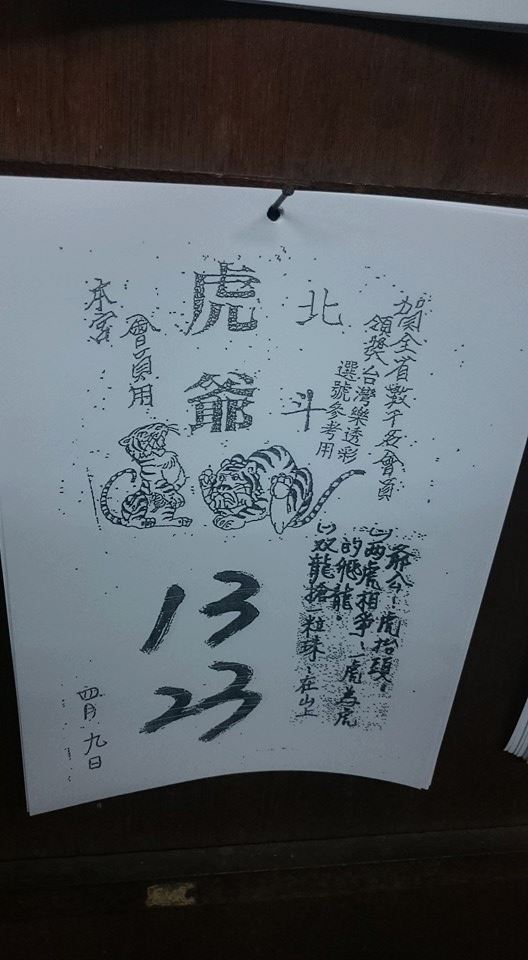 賀全省數千名會員
領獎台灣樂透彩
選號參考用
北斗
虎爺
會員用
本宮
爺公:虎抬頭:
(一)两虎相爭:一虎為虎
的飛龍。
(二)双龍搶一粒珠:在山上
13
23
四月九日